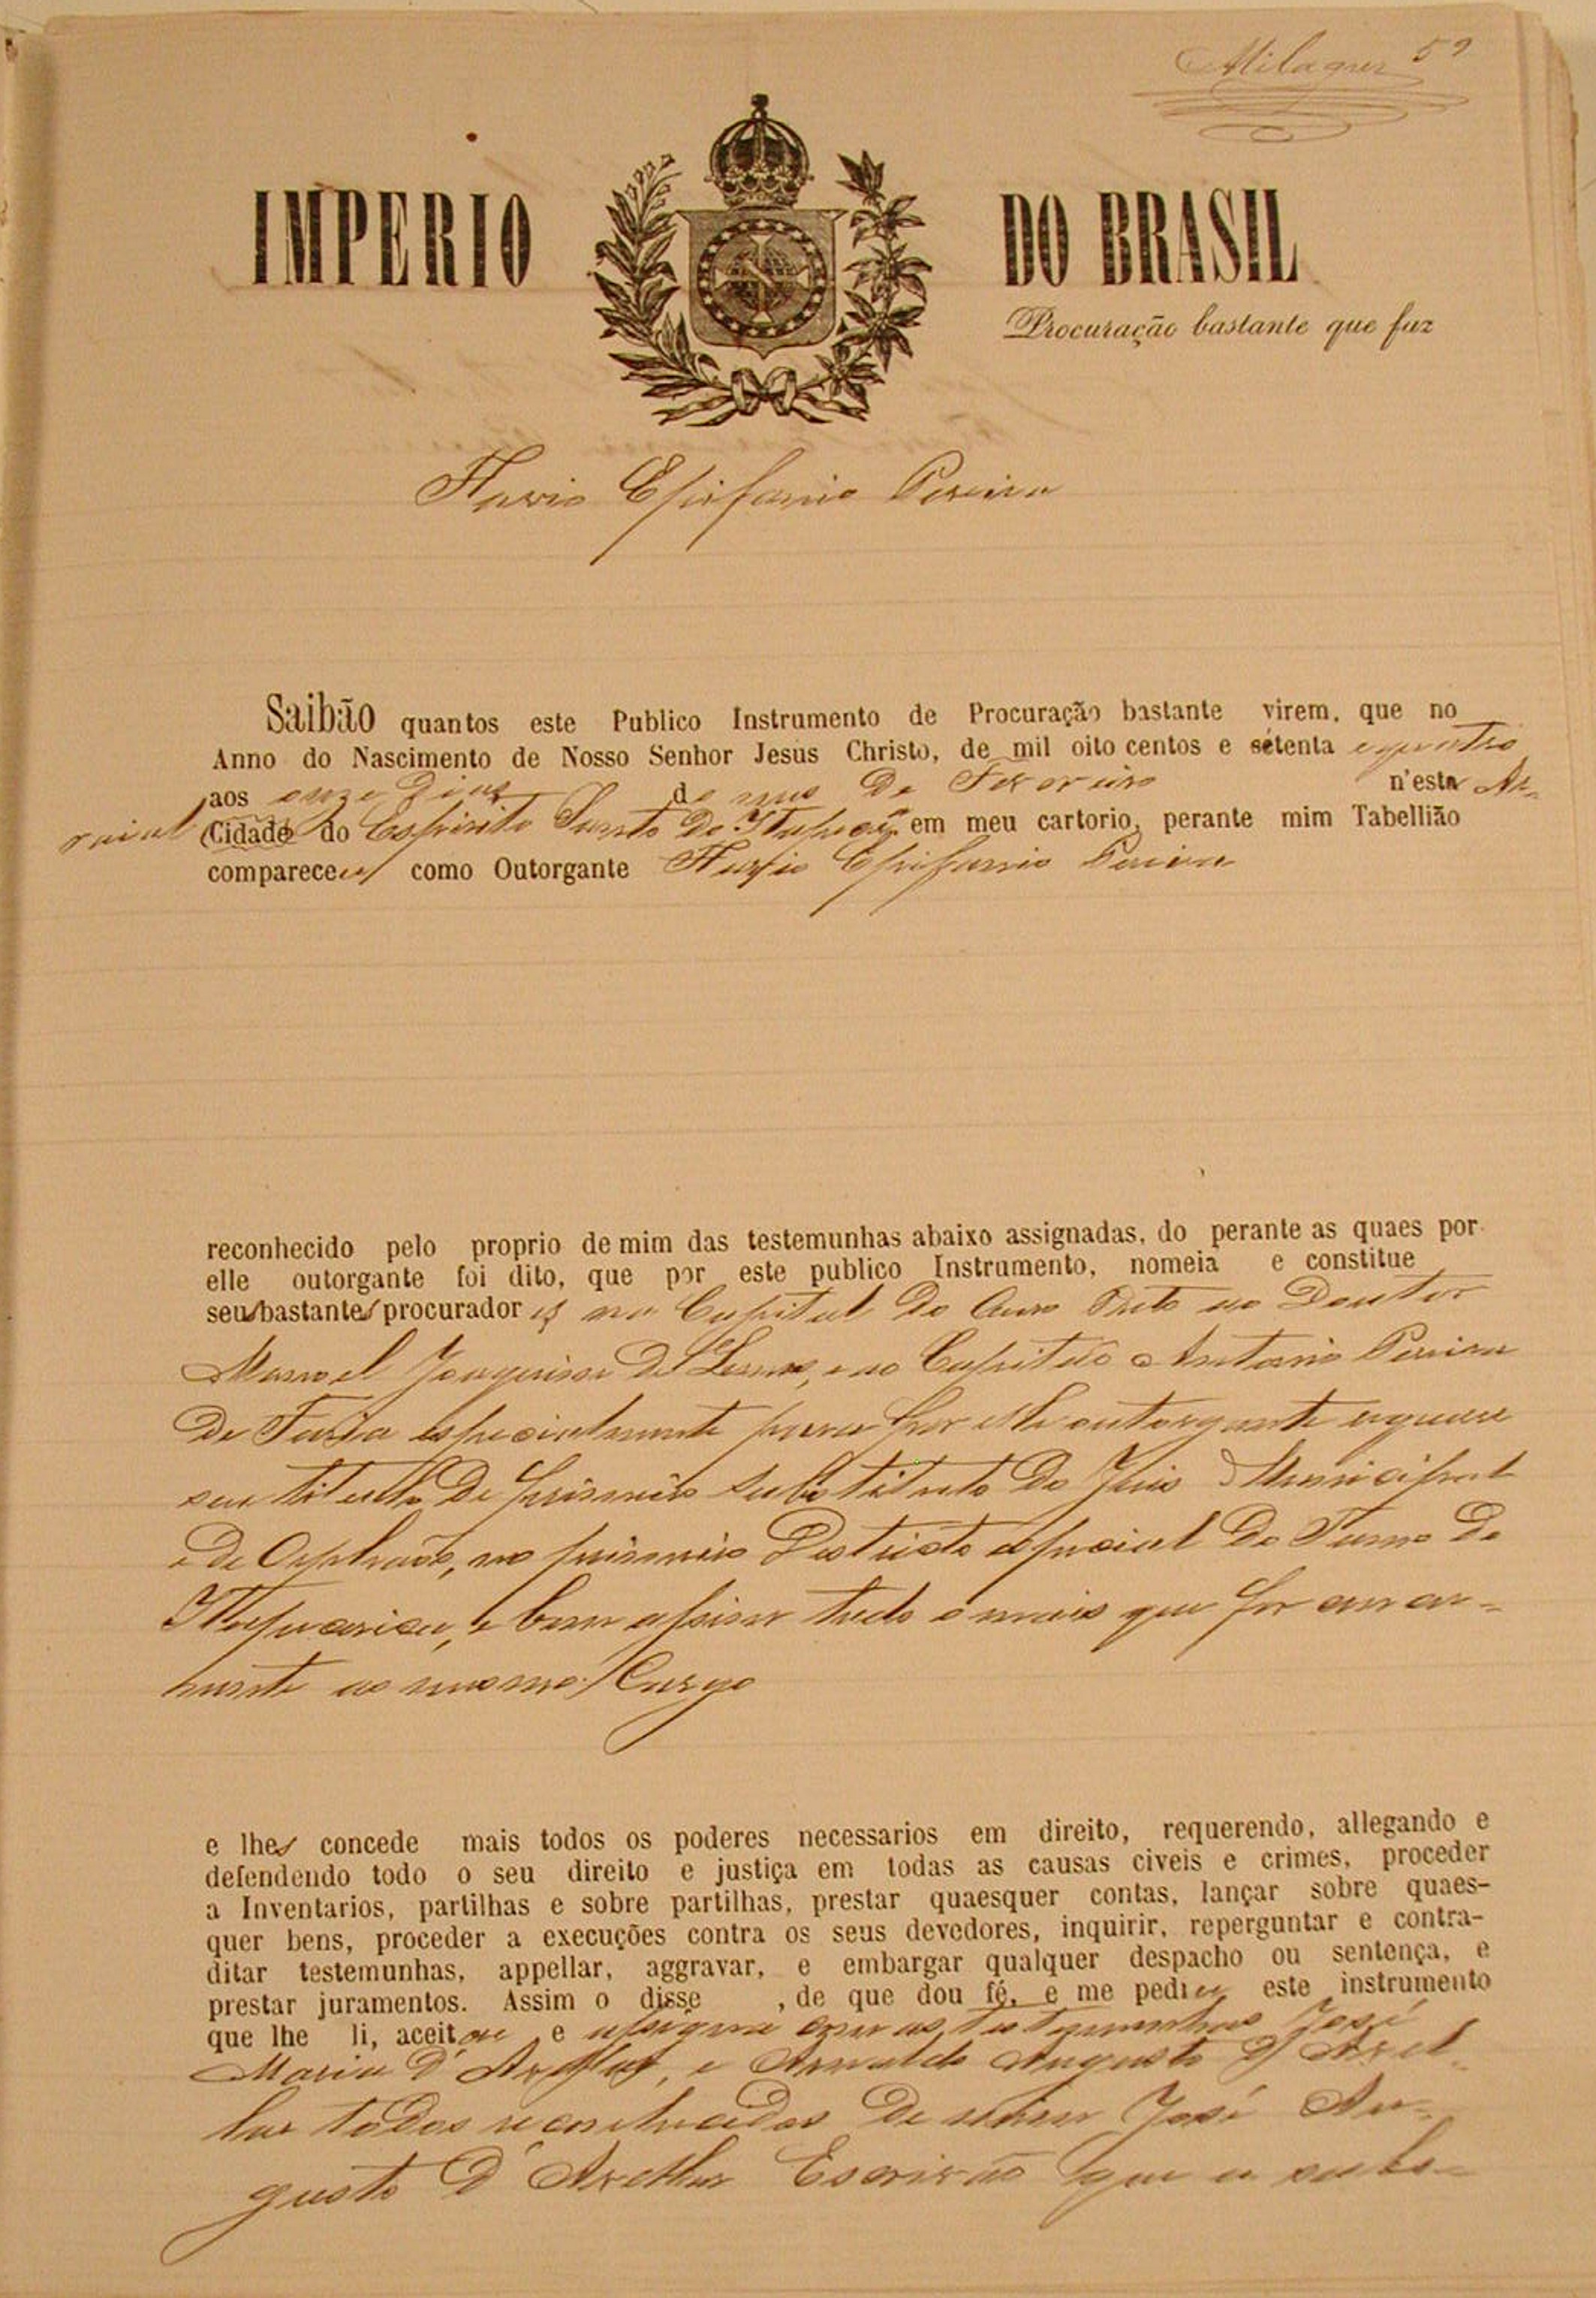 59
IMPERIO DO BRASIL
Procuração bastante que faz
Flavio Epifanio Pereira
Saibão quantos este Publico Instrumento de Procuração bastante virem, que no
Anno do Nascimento de Nosso Senhor Jesus Christo, de mil oito centos e setenta equatro
aos onze dias do mes de Fevereiro n'esta Ar-
raial Cidade do Espirito Santo do em meu cartorio, perante mim Tabellião
compareceu como Outorgante Flavio Epifanio Pereira
reconhecido pelo proprio de mim das testemunhas abaixo assignadas, do perante as quaes por
elle outorgante foi dito, que por este publico Instrumento, nomeia e constitue
seus bastantes procuradores na Capital do Ouro Preto ao Doutor
Manoel Joaquim de Lemos, e ao Capitão Antonio Pereira
de Faria especialmente para por elle outorgante
seu titullo de primeiro substituto do Juis Municipal
e de Orphaos, no primeiro Destricto especial do Termo de
e bem assim tudo o mais que for
ao mesmo Cargo
e lhes concede mais todos os poderes necessarios em direito, requerendo, allegando e
defendendo todo o seu direito e justiça em todas as causas civeis e crimes, proceder
a Inventarios, partilhas e sobre partilhas, prestar quaesquer contas, lançar sobre quaes-
quer bens, proceder a execuções contra os seus devedores, inquirir, reperguntar e contra-
ditar testemunhas, appellar, aggravar, e embargar qualquer despacho ou sentença, e
prestar juramentos. Assim o disse , de que dou fé, e me pediu este instrumento
que lhe li, aceitou e assigna com as testemunhas José
Maria D' Avellar, e Arnaldo Augusto D' Avel-
lar todos reconhecidos de mim José Au-
gusto D' Avellar Escrivão que a subs-